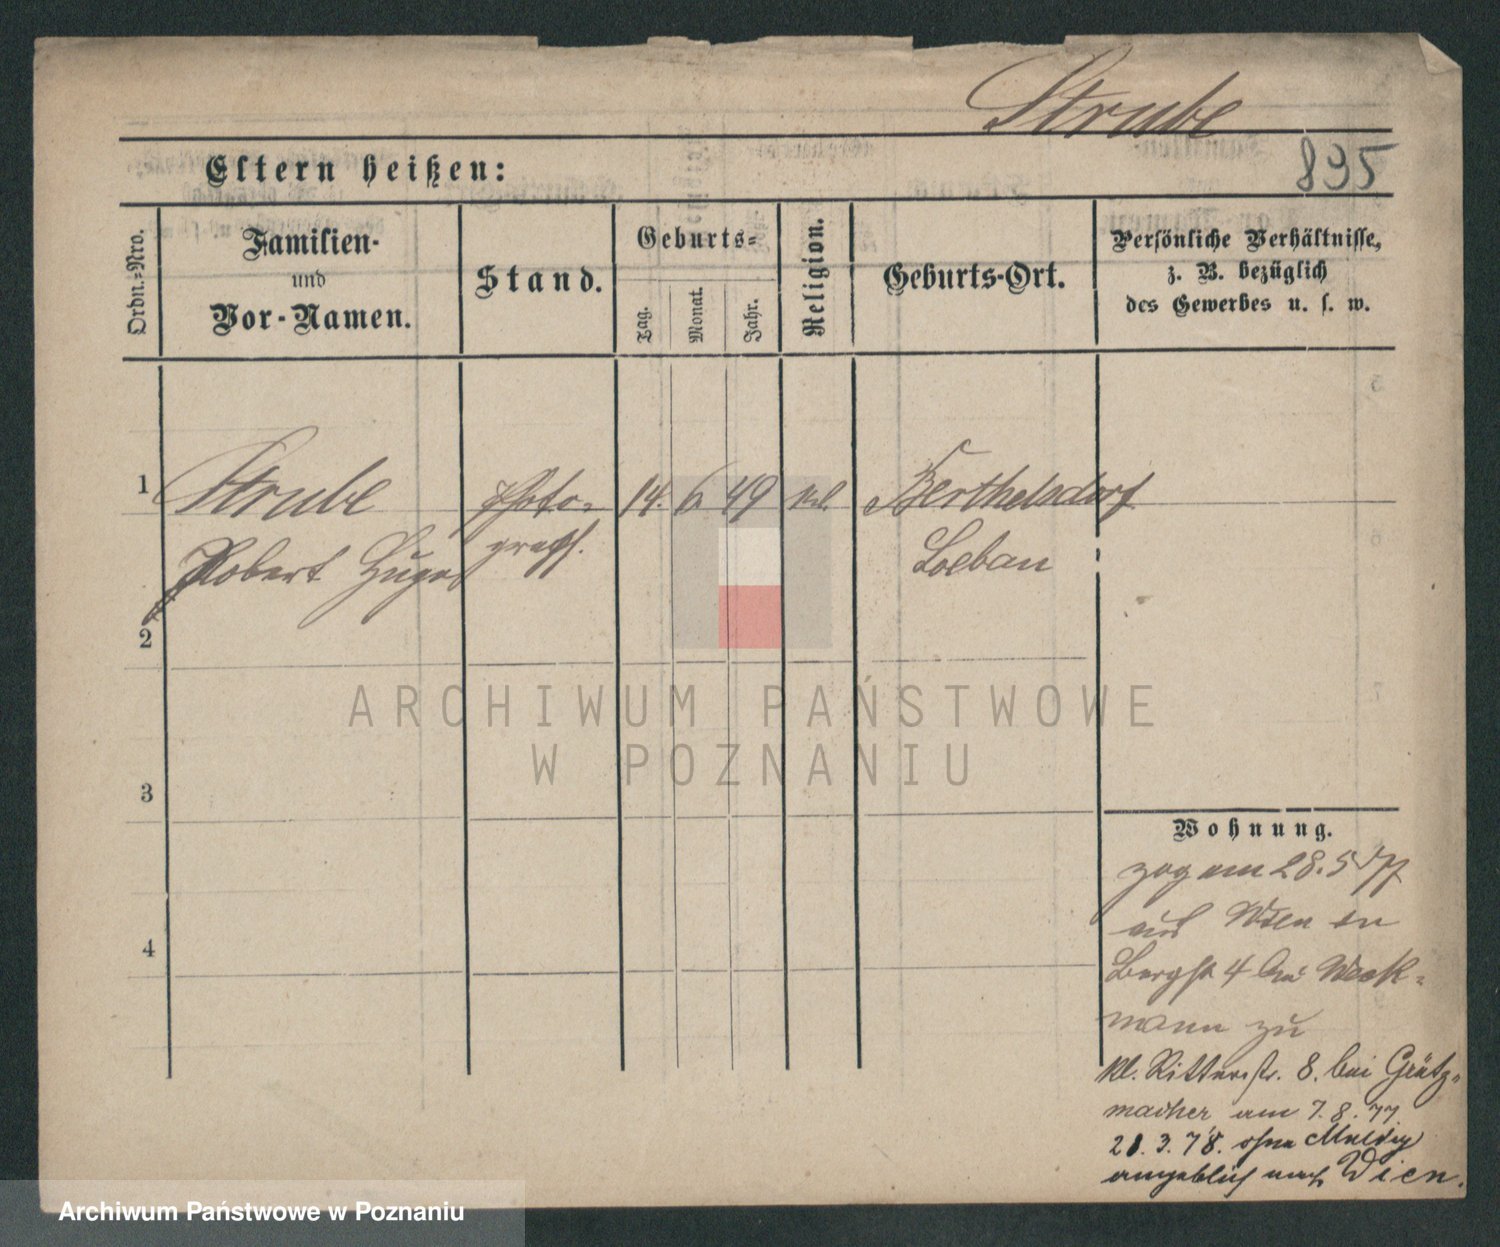 Strube
895
Eltern heißen:
Ordn.-Nro.
Familien-
und
Vor-Namen.
Stand.
Geburts-
Tag.
Monat.
Jahr.
Religion.
Geburts-Ort.
Persönliche Verhältnisse,
z. B. bezüglich
des Gewerbes u. s. w.
1
Strube
Photo-
14. 6 49
Berthelsdorf
Robert Hugo
graph.
Loebau
2
3
4
Wohnung.
zog am 28.5 77
aus Wien in
Bergstr 4 bei Weck-
mann zu
kl. Ritterstr. 8. bei Grätz-
macher am 7.8.77
21.3.78. ohne Meldg
angeblich nach Wien.
ARCHIWUM PAŃSTWOWE
W POZNANIU
Archiwum Państwowe w Poznaniu